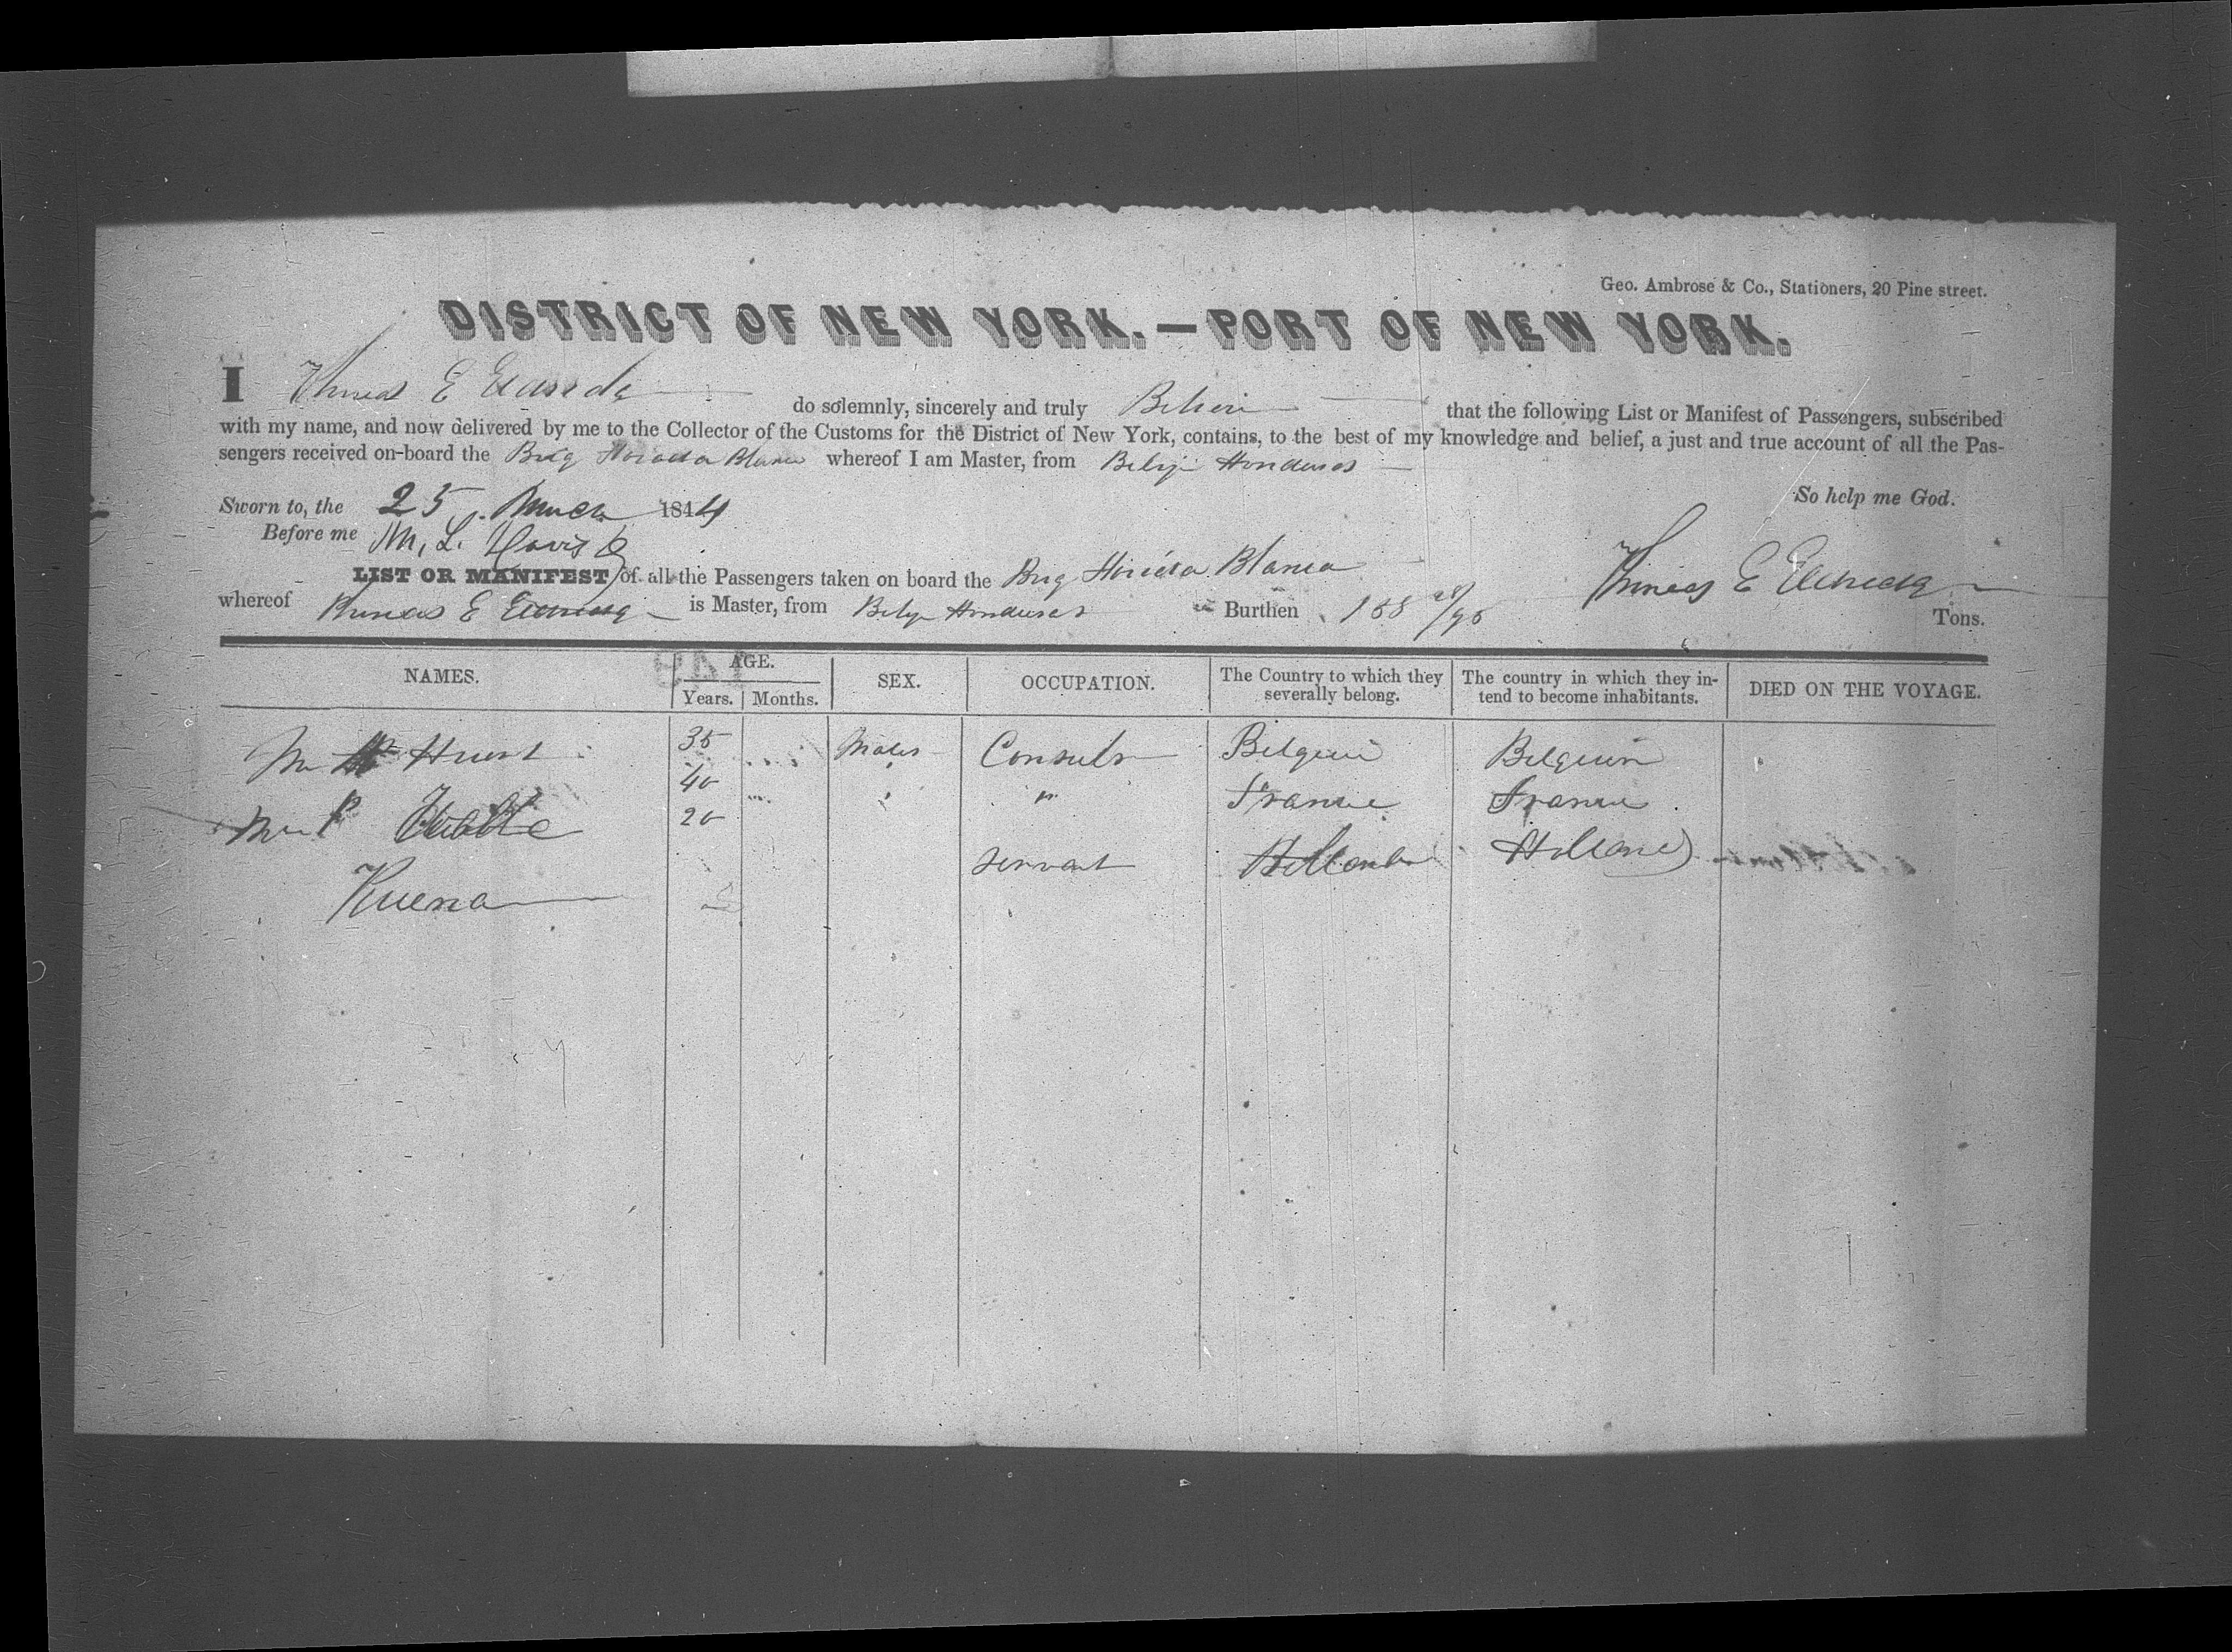 Geo. Ambrose & Co., Stationers, 20 Pine street.
DISTRICT OF NEW YORK.—PORT OF NEW YORK.
I E do solemnly, sincerely and truly that the following List or Manifest of Passengers, subscribed
with my name, and now delivered by me to the Collector of the Customs for the District of New York, contains, to the best of my knowledge and belief, a just and true account of all the Pas-
sengers received on-board the Brig Blanca whereof I am Master, from Honduras
So help me God.
Sworn to, the 25 March 1844
Before me M. L. Davis
LIST OR MANIFEST of all the Passengers taken on board the Brig Blanca
whereof E is Master, from Honduras Burthen 158 Tons.
NAMES. AGE. SEX. OCCUPATION. The Country to which they severally belong. The country in which they in-tend to become inhabitants. DIED ON THE VOYAGE.
Years. Months.
Mr 35 Males Consuls Belgium Belgium
Mr 40 " France France
20 servant Holland Holland